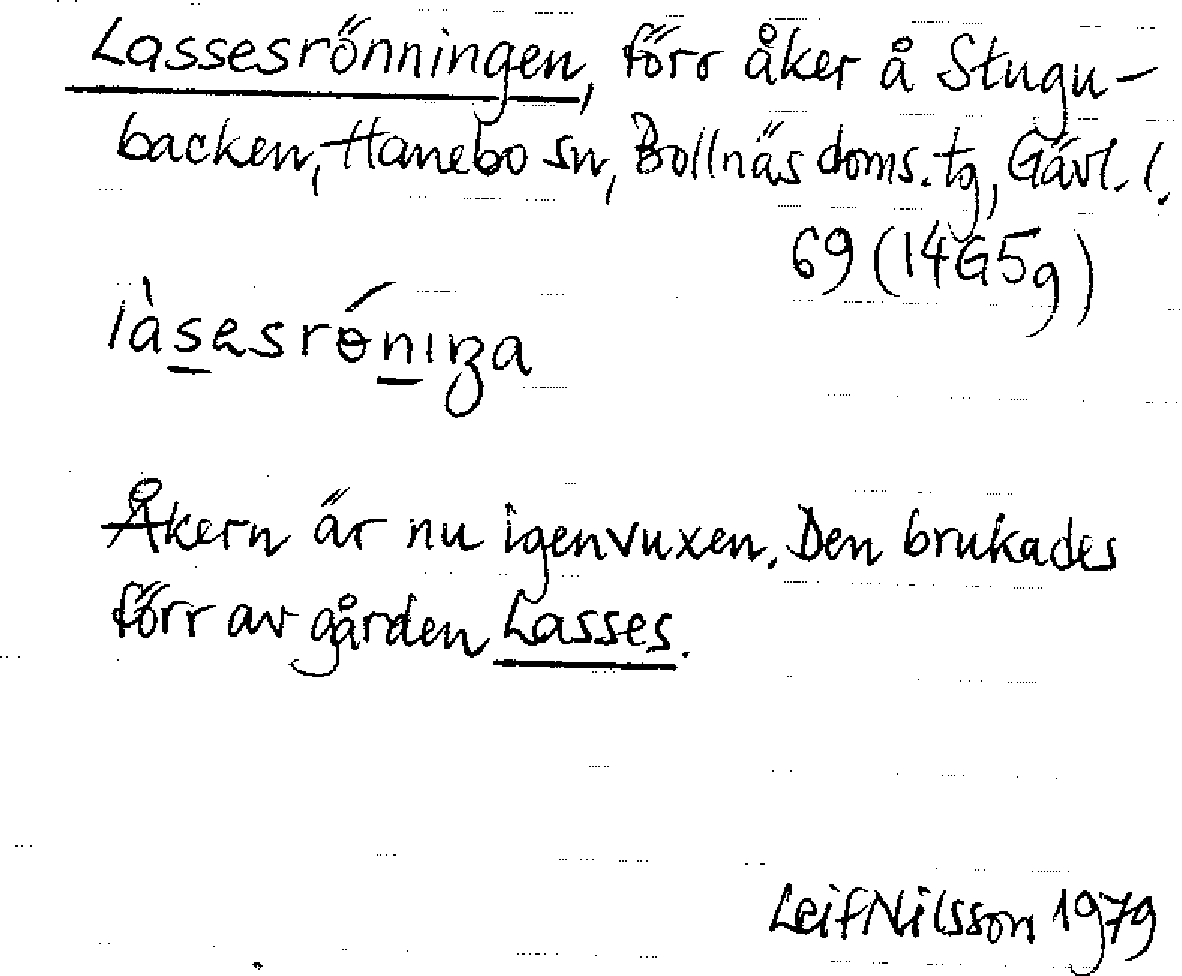 Lassesrönningen, förr åker å Stugu-
backen, Hanebo sn, Bollnäs doms. tg, Gävl. l.
69 (14G5g)
Åkern är nu igenvuxen. Den brukades
förr av gården Lasses.
Leif Nilsson 1979